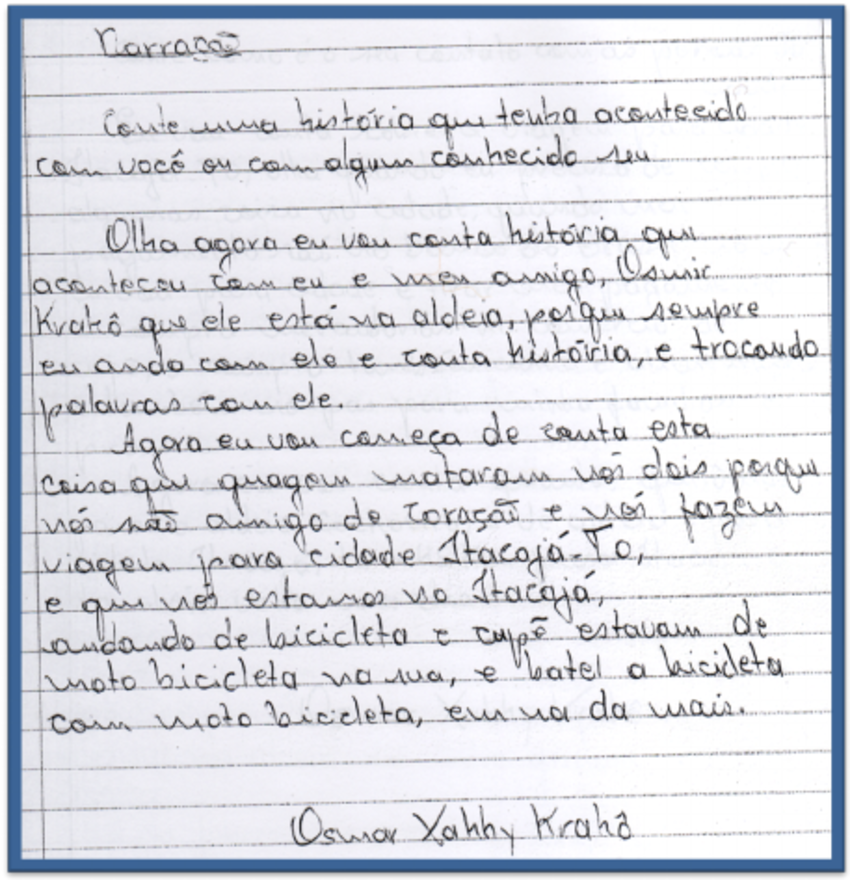 Narração
Conte uma história que tenha acontecido
com você ou com algum conhecido seu
Olha agora eu vou conta história que
aconteceu com eu e meu amigo, Osmir
Krahô que ele está na aldeia, porque sempre
eu ando com ele e conta história, e trocando
palavras com ele.
Agora eu vou começa de conta esta
coisa que quagem mataram nós dois porque
nós não amigo de coração e nós fazem
viagem para cidade Itacajá-To,
e que nós estamos no Itacajá,
andando de bicicleta e cupẽ estavam de
moto bicicleta na rua, e batel a bicicleta
com moto bicicleta, em na da mais.
Osmar Xahhy Krahô